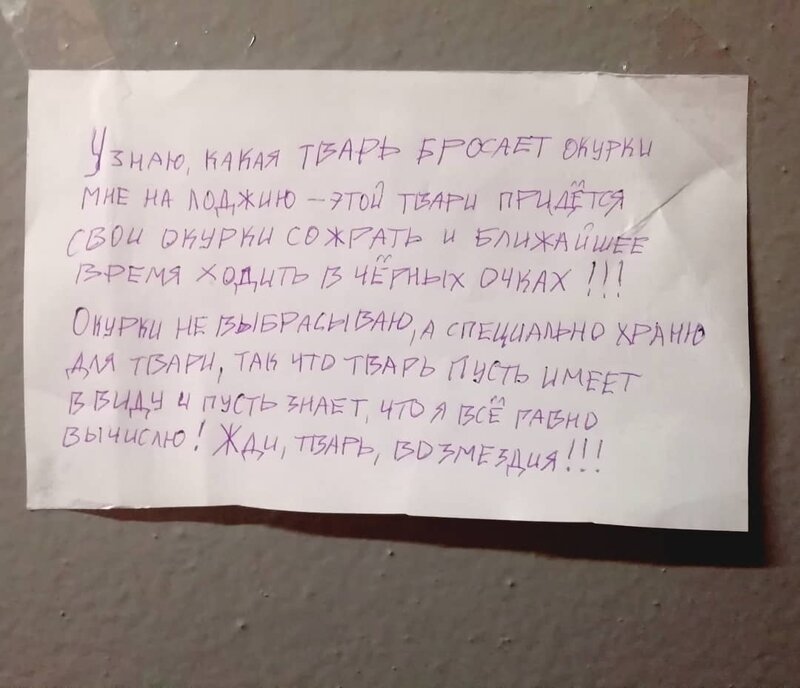 Узнаю, какая тварь бросает окурки
мне на лоджию – этой твари придётся
свои окурки сожрать и ближайшее
время ходить в чёрных очках!!!
Окурки не выбрасываю, а специально храню
для твари, так что тварь пусть имеет
в виду и пусть знает, что я всё равно
вычислю! Жди, тварь, возмездия!!!